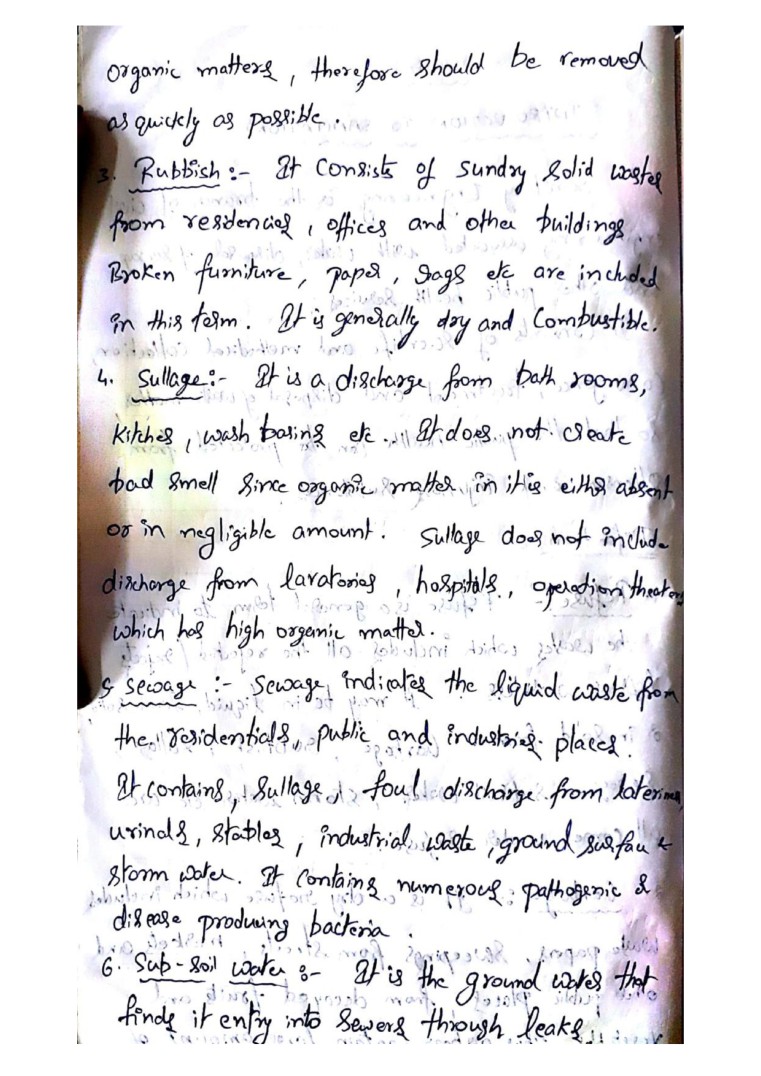 organic matters, therefore should be removed
as quickly as possible.
3. Rubbish :- It consists of sundry solid wastes
from residencies, offices and other buildings.
Broken furniture, paper, rags etc are included
in this term. It is generally dry and combustible.
4. Sullage :- It is a discharge from bath rooms,
kitches, wash basins etc. It does not create
bad smell since organic matter in it is either absent
or in negligible amount. Sullage does not include
discharge from lavatories, hospitals, operation theaters
which has high organic matter.
5 Sewage :- Sewage indicates the liquid waste from
the residentials, public and industries places.
It contains, sullage, foul discharge from laterines,
urinals, stables, industrial waste, ground surface &
storm water. It contains numerous pathogenic &
disease producing bacteria.
6. Sub-soil water :- It is the ground water that
finds it entry into sewers through leaks.